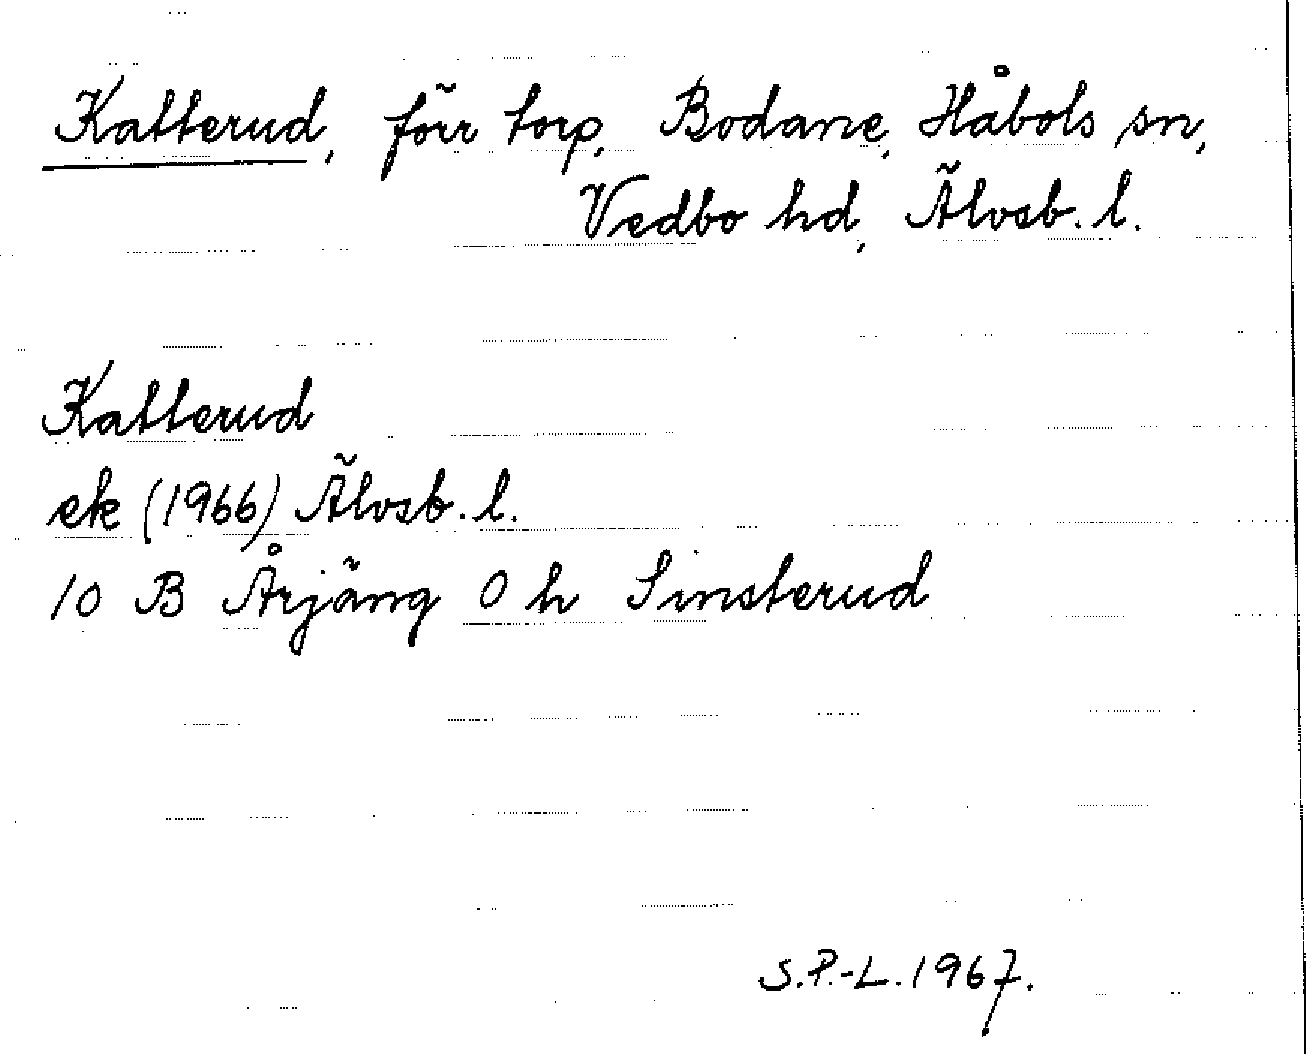 Katterud, förr torp, Bodane, Håbols sn,
Vedbo hd, Älvsb. l.
Katterud
ek (1966) Älvsb. l.
10 B Årjäng 0 h Sinsterud
S.P.-L. 1967.